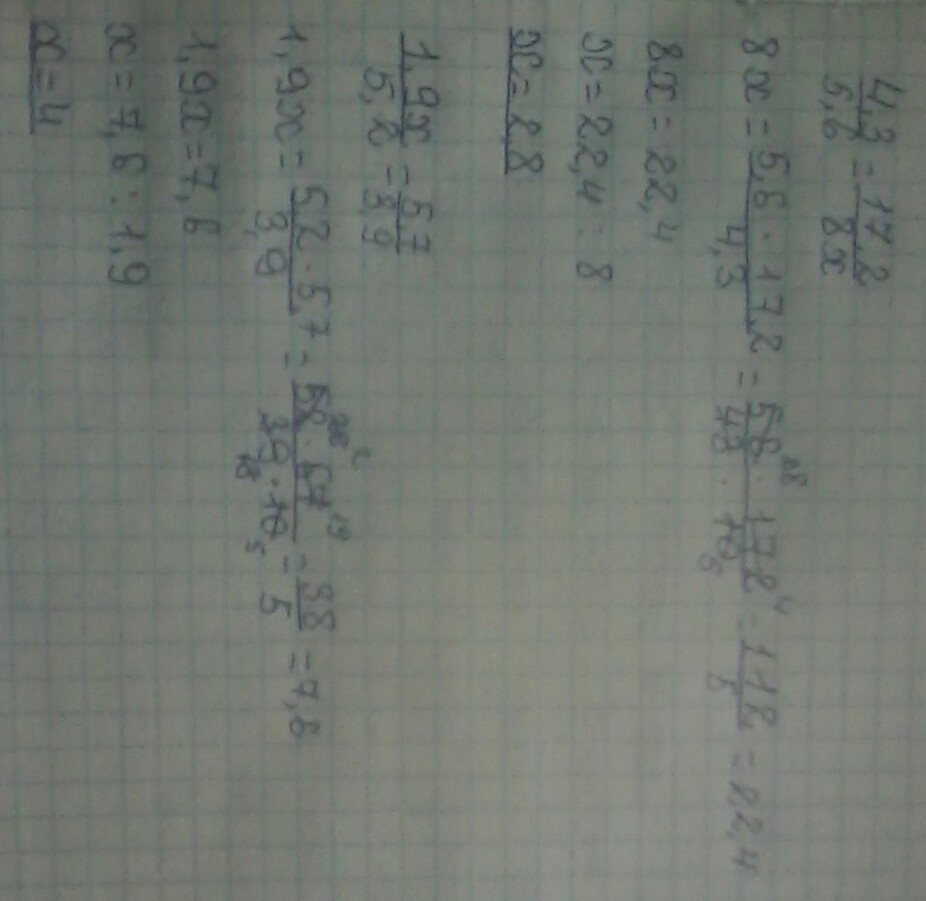 4,3/5,6 = 17,2/8x
8x = 5,6 · 17,2/4,3 = 56 28 · 172 4/43 · 10 5 = 112/5 = 22,4
8x = 22,4
x = 22,4 : 8
x = 2,8
1,9x/5,2 = 5,7/3,9
1,9x = 5,2 · 5,7/3,9 = 52 26 2 · 57 19/39 13 · 10 5 = 38/5 = 7,6
1,9x = 7,6
x = 7,6 : 1,9
x = 4